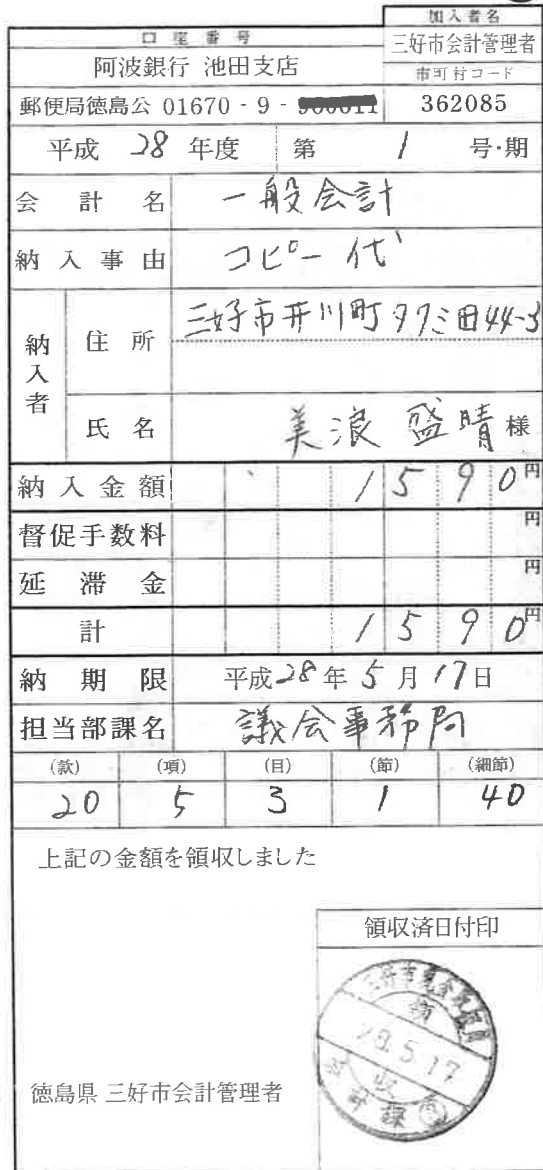 加入者名
口座番号
三好市会計管理者
阿波銀行 池田支店
市町村コード
郵便局徳島公 01670 - 9 -
362085
平成 28 年度 第 1 号·期
会計名 一般会計
納入事由 コピー代
納入者 住所 三好市井川町タクミ田44-3
氏名 美浪 盛晴 様
納入金額 1590円
督促手数料 円
延滞金 円
計 1590円
納期限 平成28年5月17日
担当部課名 議会事務局
(款) (項) (目) (節) (細節)
20 5 3 1 40
上記の金額を領収しました
領収済日付印
領
28.5.17
収
徳島県 三好市会計管理者